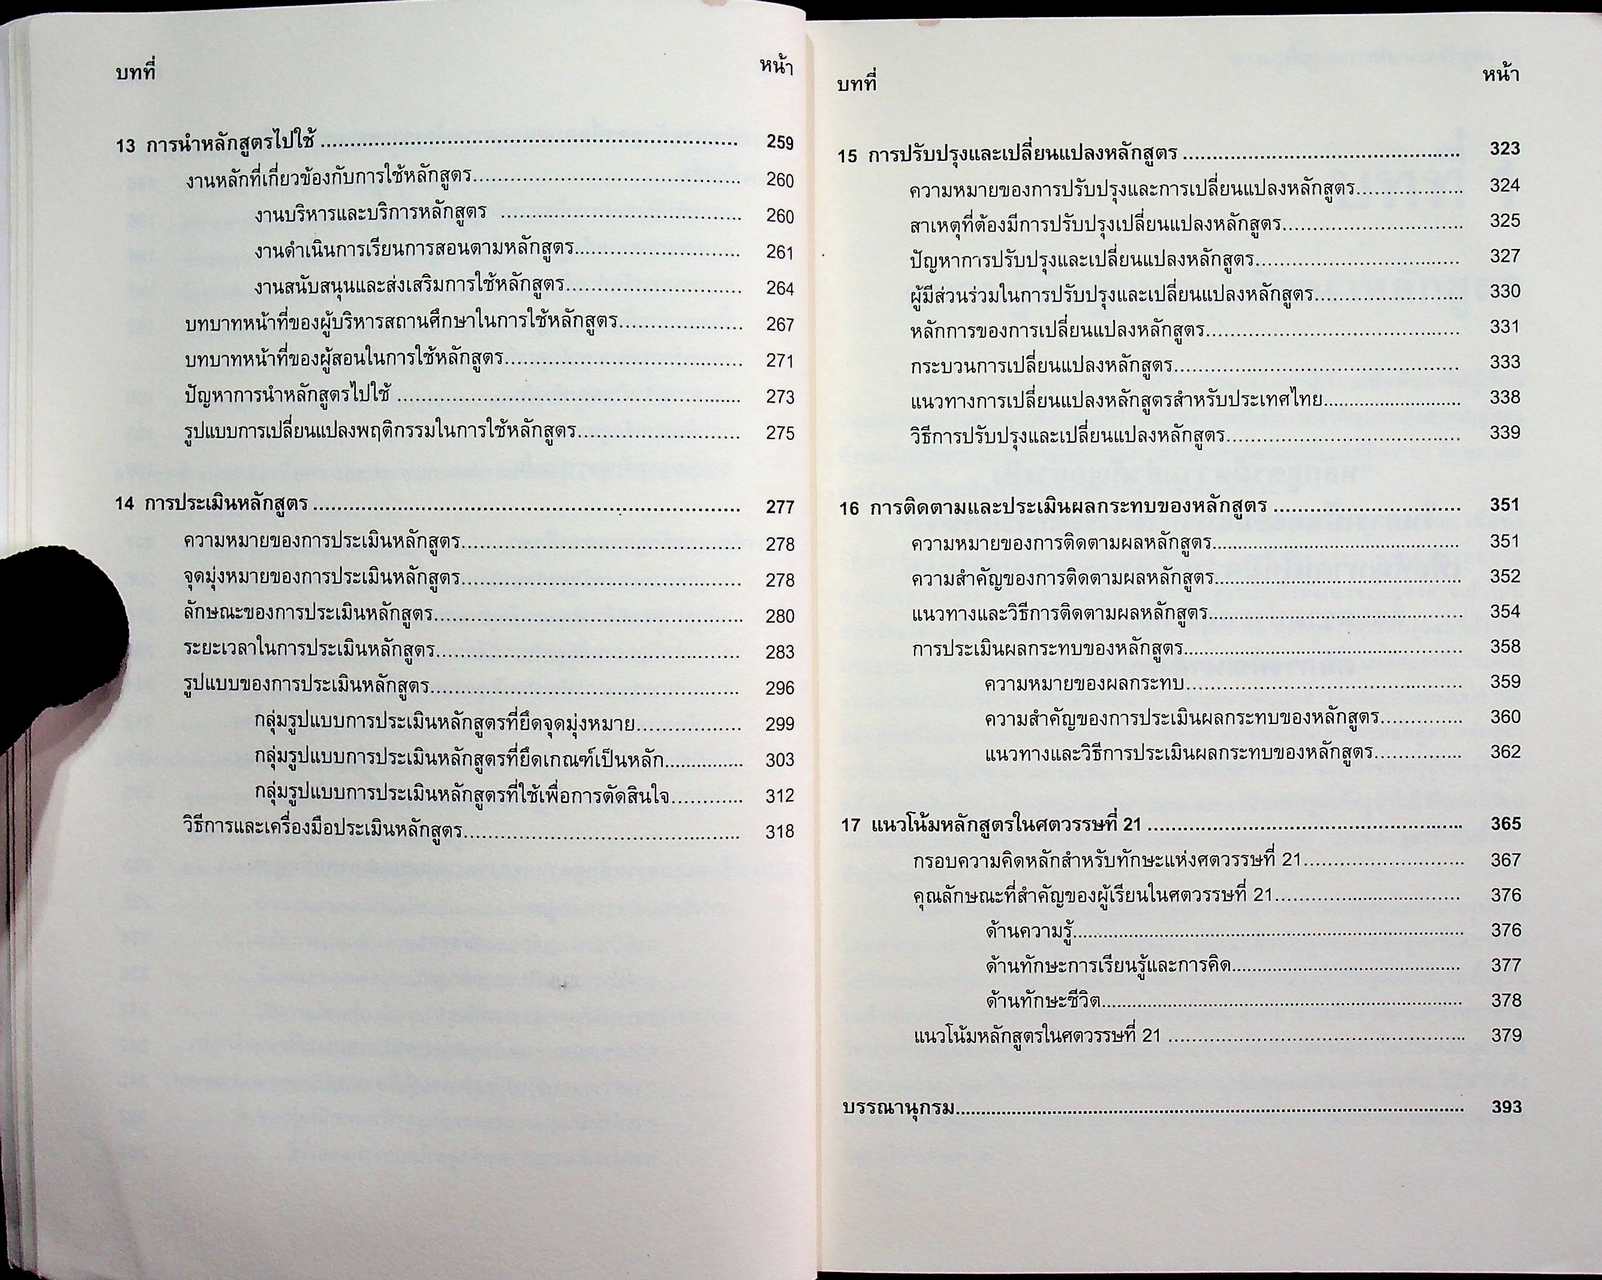 บทที่ หน้า
13 การนำหลักสูตรไปใช้ 259
งานหลักที่เกี่ยวข้องกับการใช้หลักสูตร 260
งานบริหารและบริการหลักสูตร 260
งานดำเนินการเรียนการสอนตามหลักสูตร 261
งานสนับสนุนและส่งเสริมการใช้หลักสูตร 264
บทบาทหน้าที่ของผู้บริหารสถานศึกษาในการใช้หลักสูตร 267
บทบาทหน้าที่ของผู้สอนในการใช้หลักสูตร 271
ปัญหาการนำหลักสูตรไปใช้ 273
รูปแบบการเปลี่ยนแปลงพฤติกรรมในการใช้หลักสูตร 275
14 การประเมินหลักสูตร 277
ความหมายของการประเมินหลักสูตร 278
จุดมุ่งหมายของการประเมินหลักสูตร 278
ลักษณะของการประเมินหลักสูตร 280
ระยะเวลาในการประเมินหลักสูตร 283
รูปแบบของการประเมินหลักสูตร 296
กลุ่มรูปแบบการประเมินหลักสูตรที่ยึดจุดมุ่งหมาย 299
กลุ่มรูปแบบการประเมินหลักสูตรที่ยึดเกณฑ์เป็นหลัก 303
กลุ่มรูปแบบการประเมินหลักสูตรที่ใช้เพื่อการตัดสินใจ 312
วิธีการและเครื่องมือประเมินหลักสูตร 318
บทที่ หน้า
15 การปรับปรุงและเปลี่ยนแปลงหลักสูตร 323
ความหมายของการปรับปรุงและการเปลี่ยนแปลงหลักสูตร 324
สาเหตุที่ต้องมีการปรับปรุงเปลี่ยนแปลงหลักสูตร 325
ปัญหาการปรับปรุงและเปลี่ยนแปลงหลักสูตร 327
ผู้มีส่วนร่วมในการปรับปรุงและเปลี่ยนแปลงหลักสูตร 330
หลักการของการเปลี่ยนแปลงหลักสูตร 331
กระบวนการเปลี่ยนแปลงหลักสูตร 333
แนวทางการเปลี่ยนแปลงหลักสูตรสำหรับประเทศไทย 338
วิธีการปรับปรุงและเปลี่ยนแปลงหลักสูตร 339
16 การติดตามและประเมินผลกระทบของหลักสูตร 351
ความหมายของการติดตามผลหลักสูตร 351
ความสำคัญของการติดตามผลหลักสูตร 352
แนวทางและวิธีการติดตามผลหลักสูตร 354
การประเมินผลกระทบของหลักสูตร 358
ความหมายของผลกระทบ 359
ความสำคัญของการประเมินผลกระทบของหลักสูตร 360
แนวทางและวิธีการประเมินผลกระทบของหลักสูตร 362
17 แนวโน้มหลักสูตรในศตวรรษที่ 21 365
กรอบความคิดหลักสำหรับทักษะแห่งศตวรรษที่ 21 367
คุณลักษณะที่สำคัญของผู้เรียนในศตวรรษที่ 21 376
ด้านความรู้ 376
ด้านทักษะการเรียนรู้และการคิด 377
ด้านทักษะชีวิต 378
แนวโน้มหลักสูตรในศตวรรษที่ 21 379
บรรณานุกรม 393